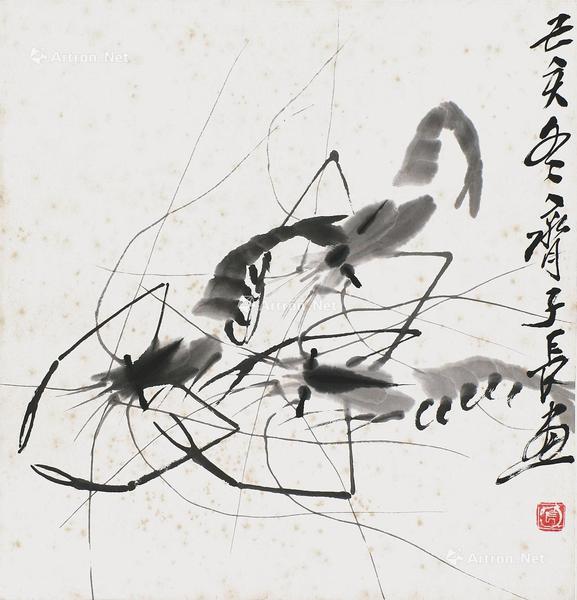 己亥冬齊子長畫
Artron.Net
Artron.Net
Artron.Net